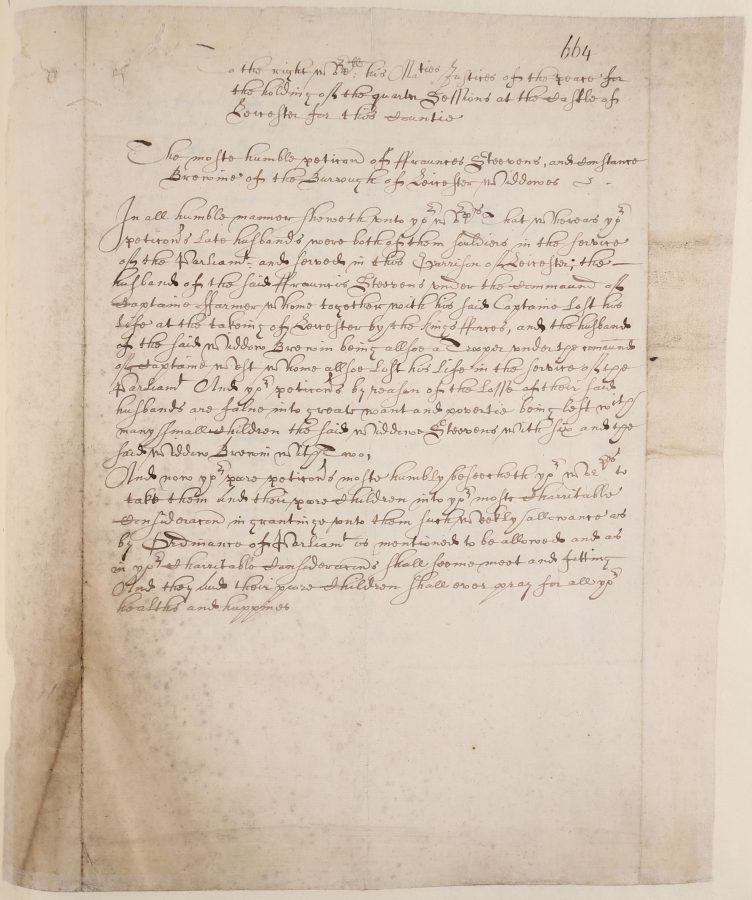 664
o the right wor:ble his Maties Justices of the peace for
the holding of the quarter Sessions at the Castle of
Leicester for this Countie
The moste humble peticon of ffraunces Steevens, and Constance
Brewine of the Burrough of Leicester widdowes
In all humble manner sheweth unto yor worpps That whereas yor
peticonrs late husbands were both of them souldiers in the service
of the Parliamt: and served in this Garrison of Leicester; the
husband of the said ffrauncis Steevens under the Commaund of
Captaine ffarmer whome together with his said Captaine lost his
life at the taking of Leicester by the kings fforces, and the husband
of the said widdow Brewin being allsoe a Trooper under the comaund
of Captaine West whome allsoe lost his life in the service of the
Parliamt And yor peticonrs by reason of the losse of their said
husbands are falne into greate want and povertie being left with
many small Children the said widdowe Steevens with six and the
said widdow Brewin with Two,
And now yor poore peticonrs moste humbly beseecheth yor worpps to
take them and their poore Children into yor moste Charitable
Consideracon in grantinge unto them such weekly allowance as
by Ordinance of Parliamt is mentioned to be allowed and as
in yor Charitable Consideracons shall seeme meet and fitting
And they and their poore Children shall ever pray for all yor
healths and happines